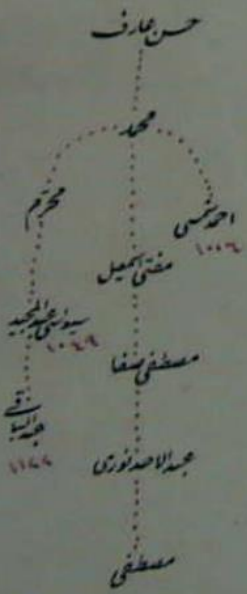 حسن عارف
محمد
احمد شمسی
١٠٠٦
محرم
مفتی اسمعیل
سیواسی عبدالمجید
١٠٤٩
مصطفی صفا
عبدالباقی
١١٢٢
عبدالاحد نوری
مصطفی